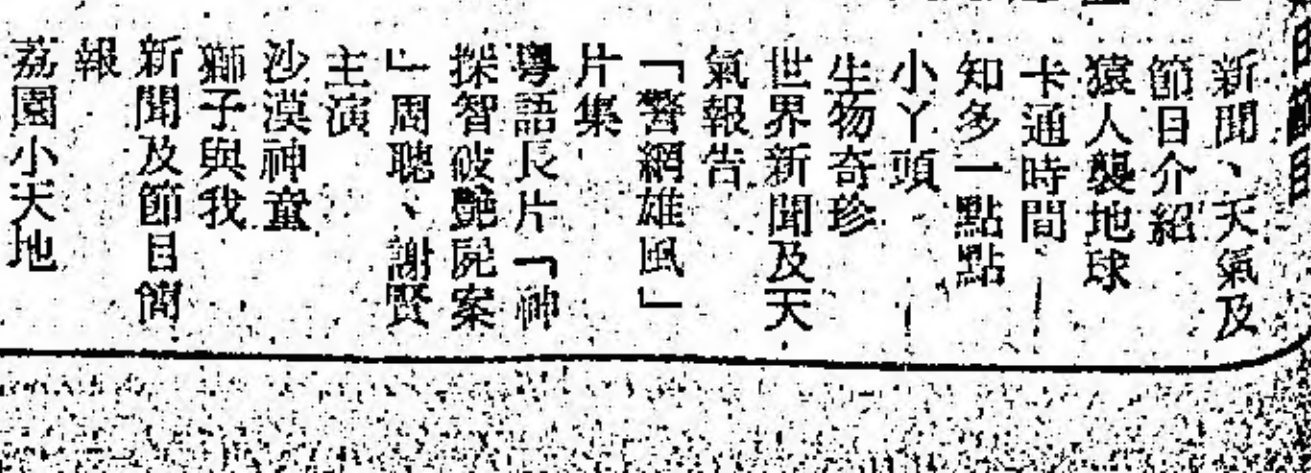 新聞、天氣及
節目介紹
猿人襲地球
卡通時間
知多一點點
小丫頭
生物奇珍
世界新聞及天
氣報告
「警網雄風」
片集
粵語長片「神
探智破艷屍案
」周聰、謝賢
主演
沙漠神童
獅子與我
新聞及節目簡
報
荔園小天地